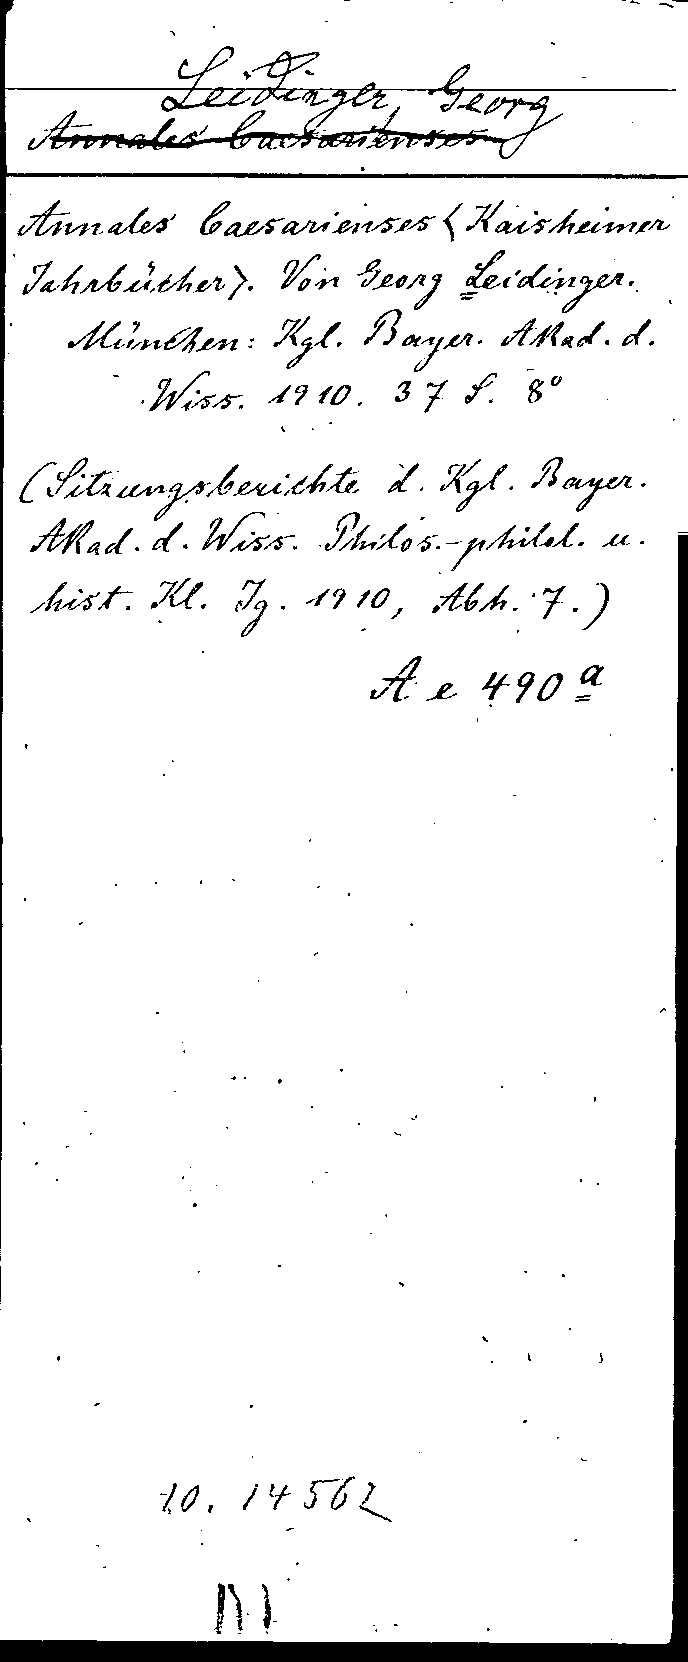 Leidinger, Georg
Annales Caesarienses
Annales Caesarienses <Kaisheimer
Jahrbücher>. Von Georg Leidinger.
München: Kgl. Bayer. Akad. d.
Wiss. 1910. 37 S. 8°
(Sitzungsberichte d. Kgl. Bayer.
Akad. d. Wiss. Philos.-philol. u.
hist. Kl. Jg. 1910, Abh. 7.)
A e 490 a
10. 14562